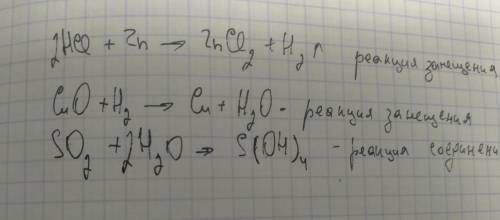 2HCl + Zn → ZnCl₂ + H₂↑ реакция замещения
CuO + H₂ → Cu + H₂O - реакция замещения
SO₂ + 2H₂O → S(OH)₄ - реакция соединени